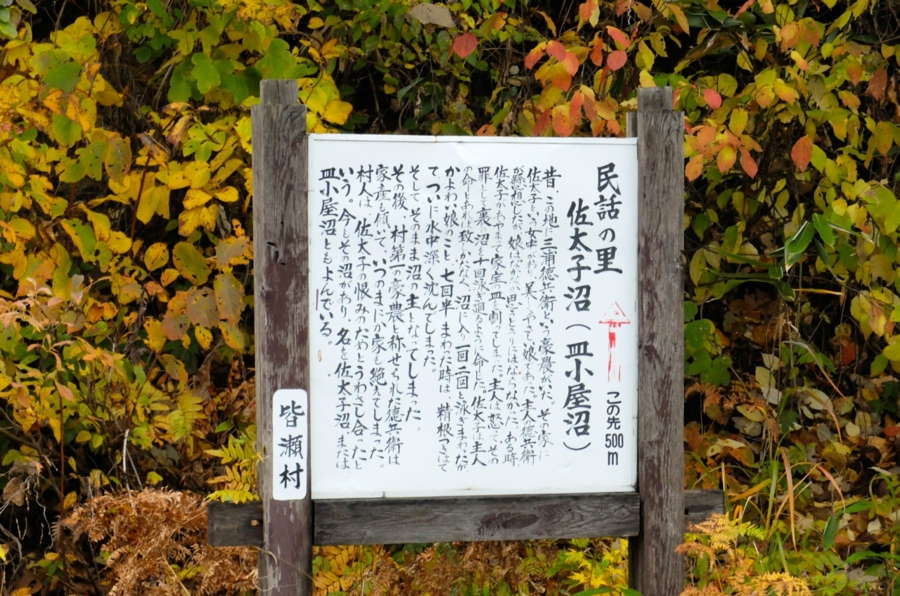 民話の里
この先500m
佐太子沼(皿小屋沼)
昔、この地に三浦徳兵衛という豪農がいた。その家に
佐太子という女中がおり、美しくやさしい娘であった。主人徳兵衛
が懸想したが、娘はなかなか思いどおりにはならなかった。ある時
佐太子があやまって家宝の皿一割ってしまった。主人は怒ってその
罪として裏の沼を千回泳ぎ廻るように命じた。佐太子は主人
の命とあれば致しかたなく、沼に入り一回二回と泳ぎまわったが
かよわい娘のこと、七百半まわった時は、精根つきて
ついに水中深く沈んでしまった。
そして、そのまま沼の主となってしまった。
その後、村第一の豪農と称せられた徳兵衛は
家産も傾いて、いつのまにか家も絶えてしまった。
村人は、佐太子の恨みのためとうわさし合ったと
いう。今もその沼があり、名を佐太子沼、または
皿小屋沼ともよんでいる。
皆瀬村